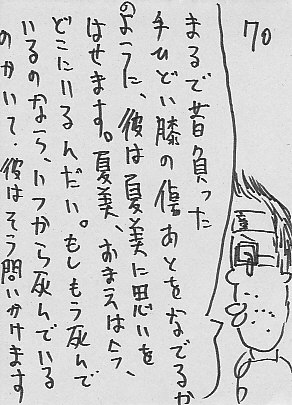 70
まるで昔負った
手ひどい膝の傷あとをなでるか
のように、彼は夏美に思いを
はせます。夏美、おまえは今、
どこにいるんだい。もしもう死んで
いるのなら、いつから死んでいる
のかいて・彼はそう問いかけます